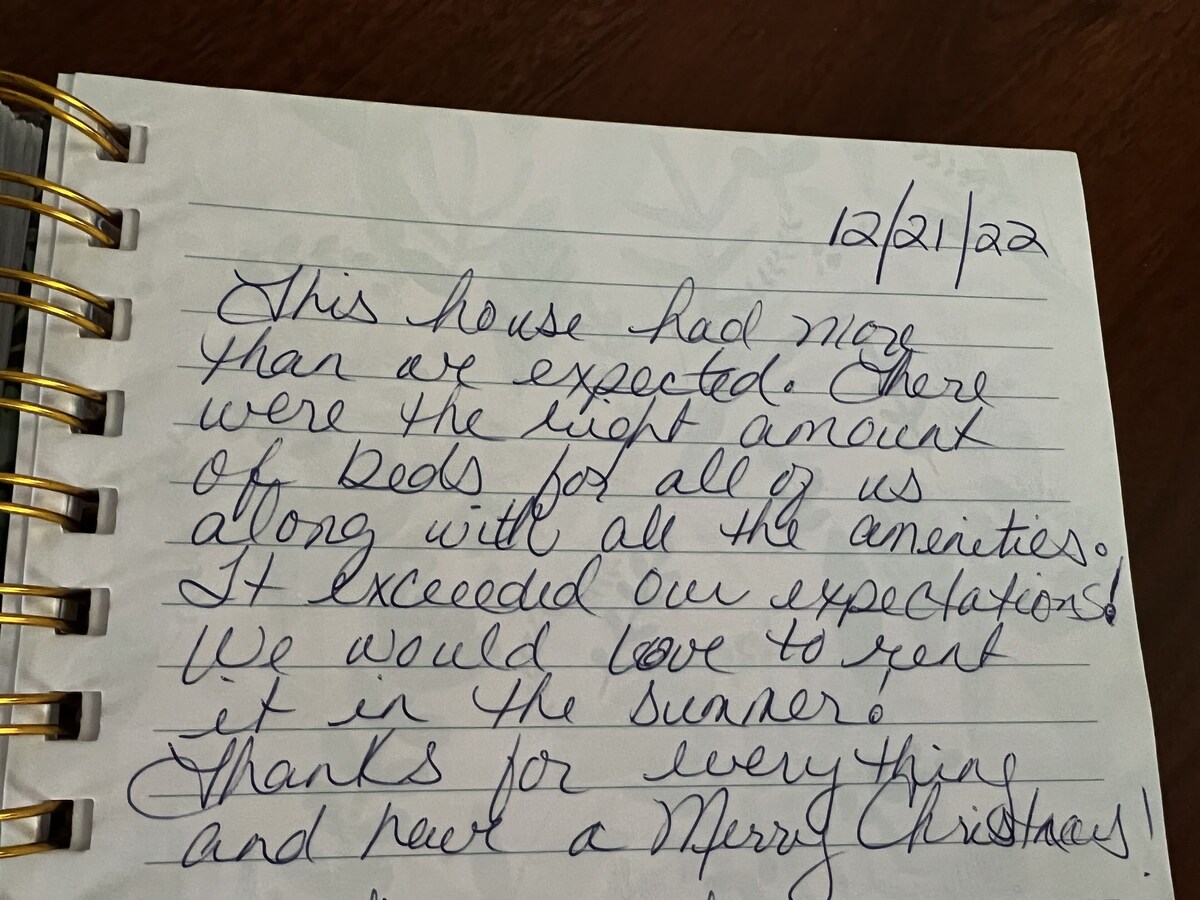 12/21/22
This house had more
than we expected. There
were the right amount
of beds for all of us
along with all the ameneties.
It exceeded our expectations!
We would love to rent
it in the summer!
Thanks for everything
and have a Merry Christmas!